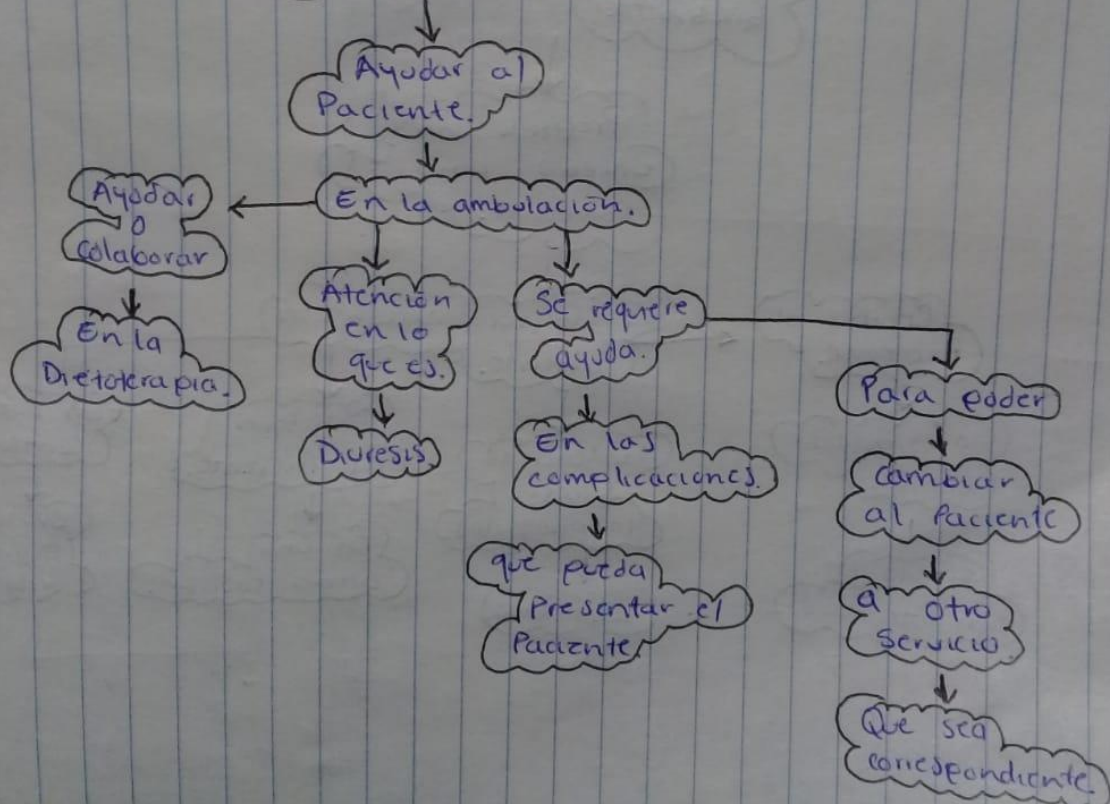 Ayudar al
Paciente.
En la ambulación.
Ayudar
O
Colaborar
En la
Dietoterapia.
Atención
en lo
que es.
Diuresis
Se requiere
ayuda.
En las
complicaciones.
que pueda
Presentar el
Paciente
Para podder
Cambiar
al Paciente
a otro
Servicio.
Que sea
correspondiente.